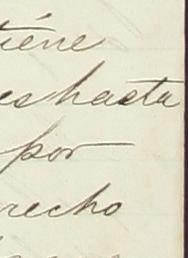 tiéne
es hasta
por
recho